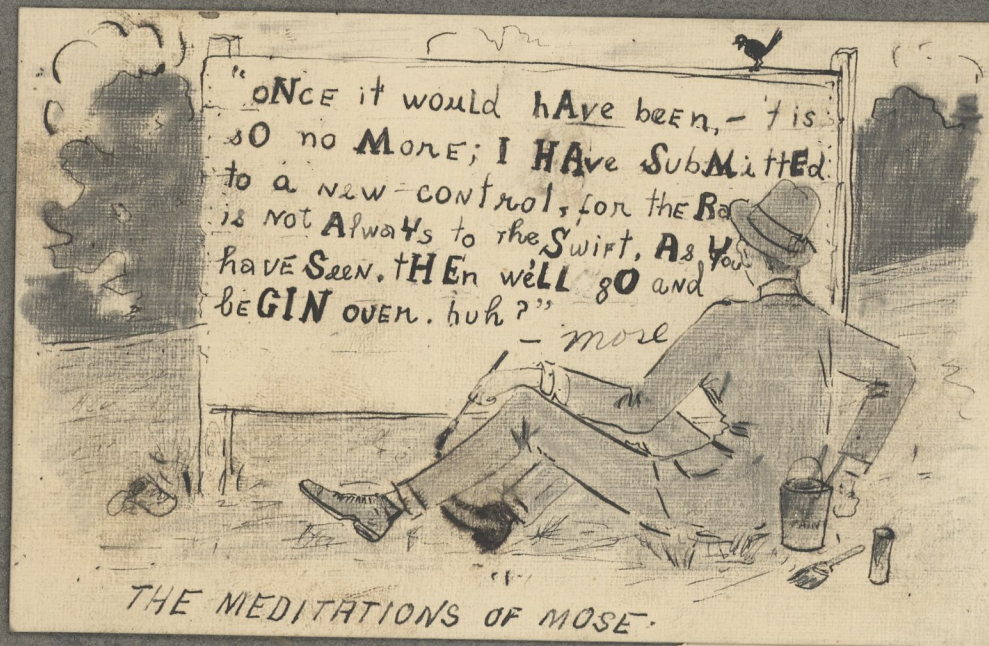 "oNcE it would hAve beEn,- 't is
sO no MorE; I HAve SubMittEd
to a new-control, for thE Ra
is Not AlwaYs to the Swift, As You
havE SeeN. tHEn we'LL gO and
beGIN over. huh?"
- Mose
PAIN
THE MEDITATIONS OF MOSE.